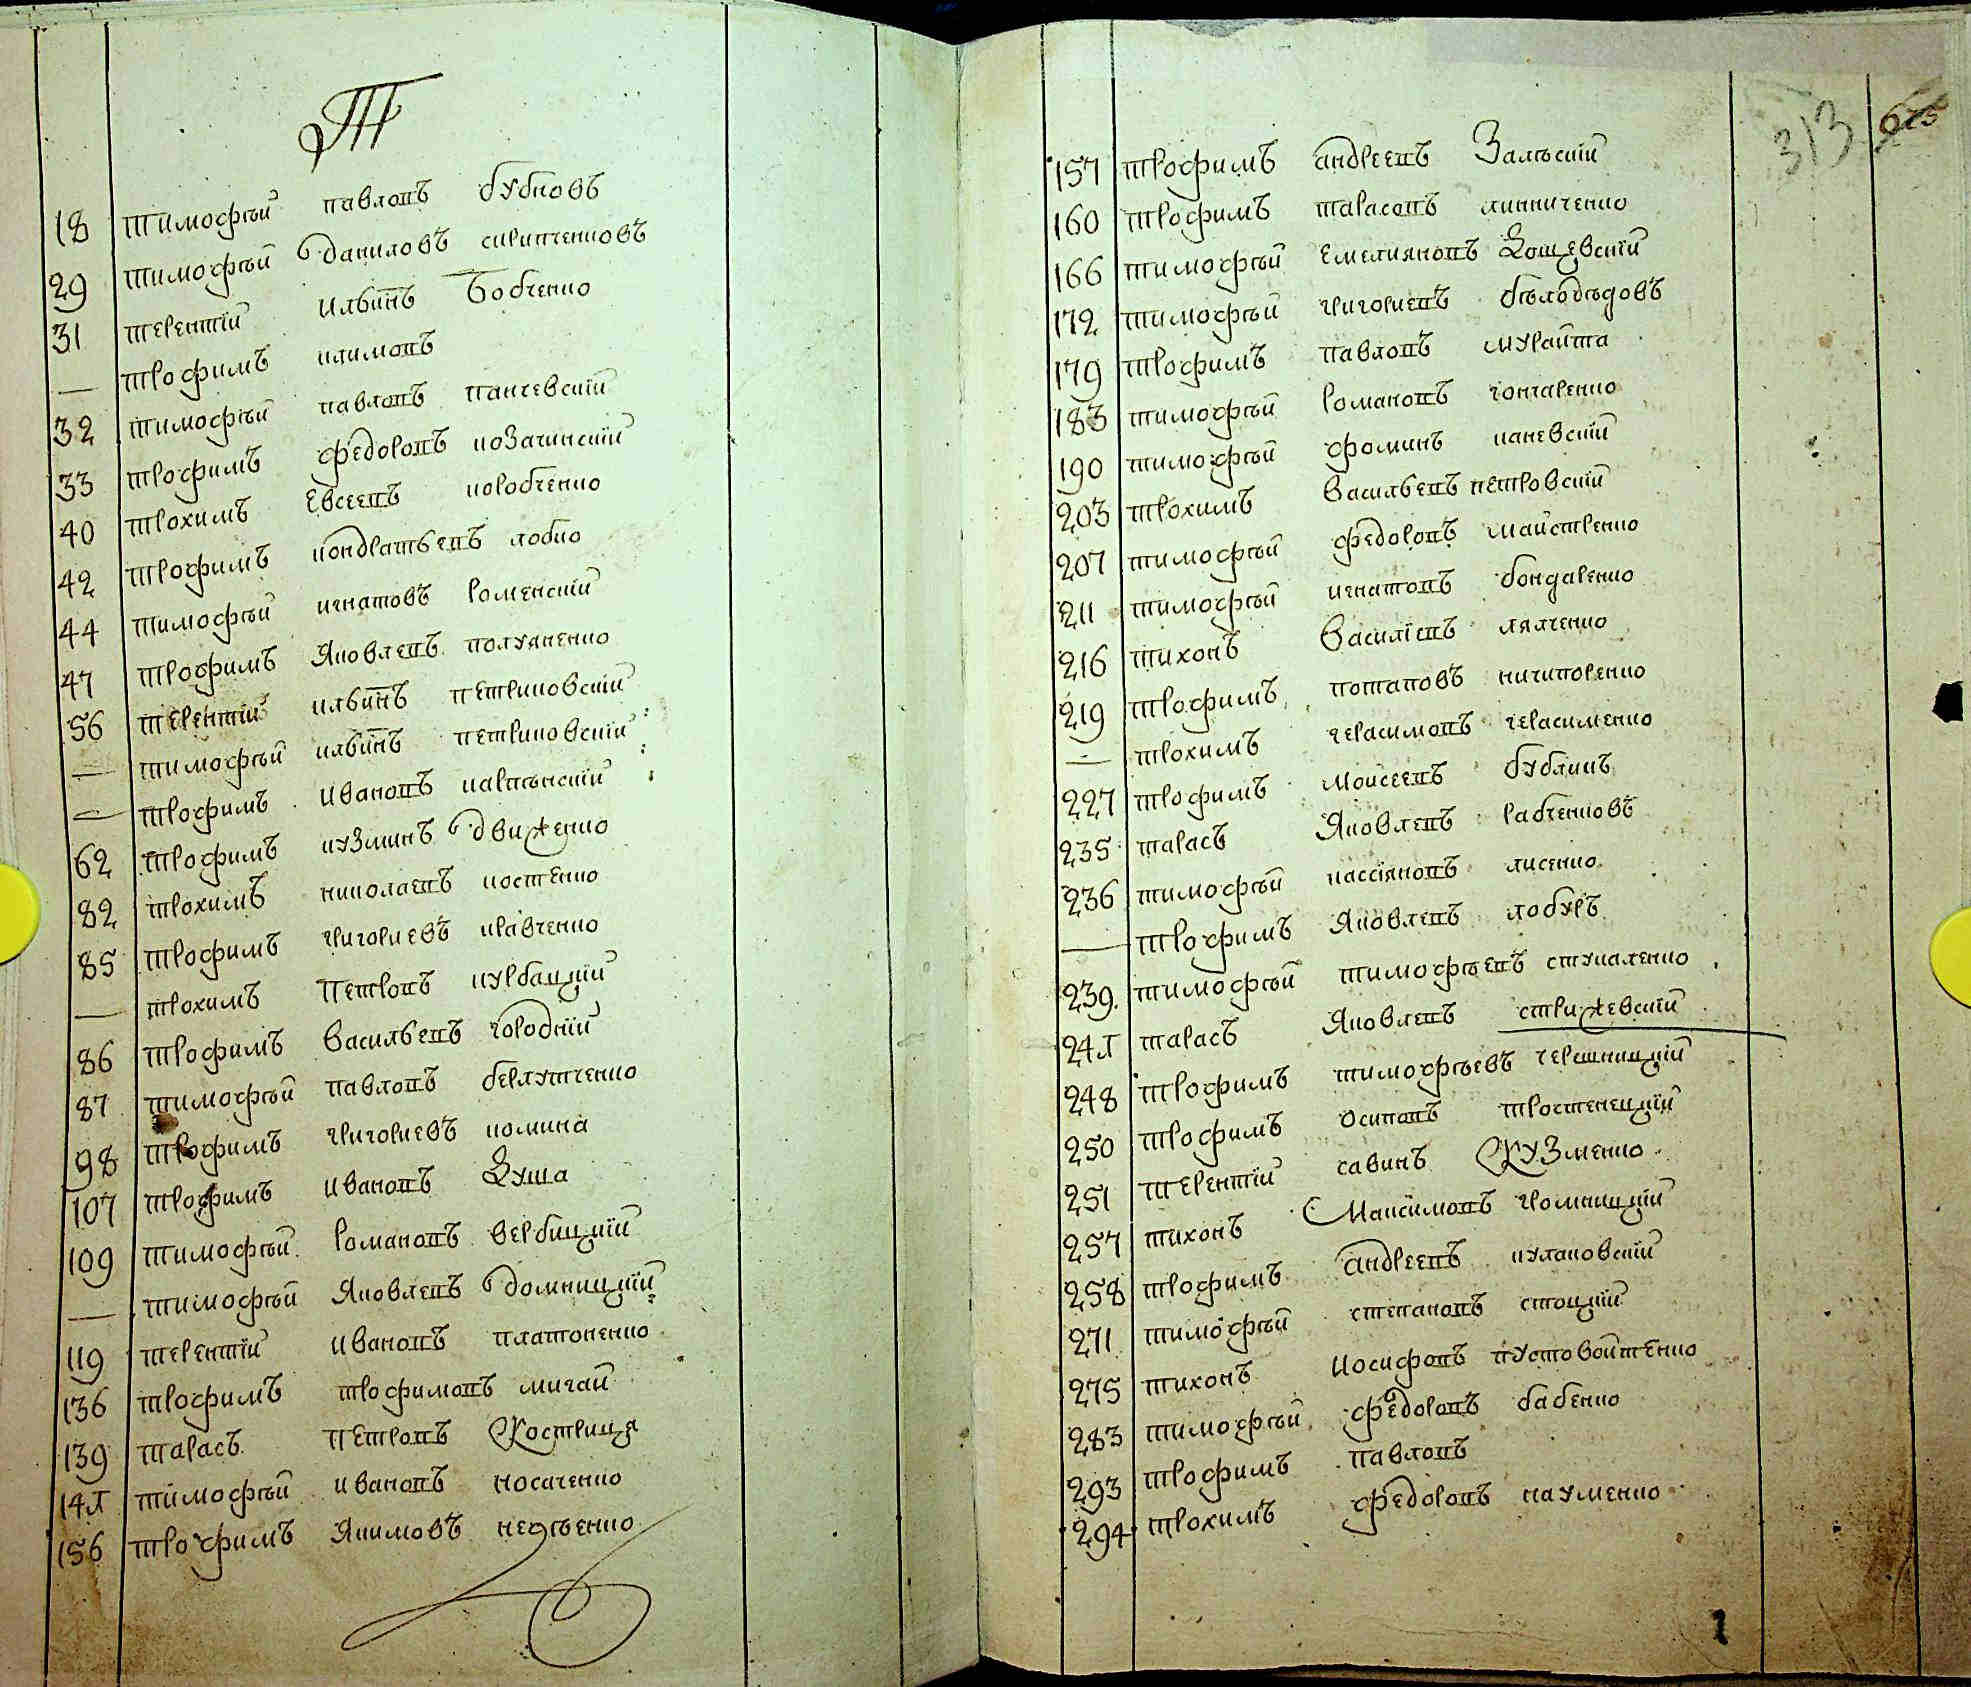 Т
18 тимофѣй павловъ бубновъ
29 тимофѣй даниловъ скрипченковъ
31 терентїй ильинъ Бобченко
— трофимъ климовъ
32 тимофѣй павловъ панчевскїй
33 трофимъ федоровъ козачинскїй
40 трохимъ Евсеевъ коробченко
42 трофимъ кондратьевъ лобко
44 тимофѣй игнатовъ роменскїй
47 трофимъ Яковлевъ полуяненко
56 терентїй ильинъ петриковскїй
— тимофѣй ильинъ петриковскїй
— трофимъ ивановъ карпѣнскїй
62 трофимъ кузминъ движенко
82 трохимъ николаевъ костенко
85 трофимъ григориевъ кравченко
— трохимъ Петровъ курбацкїй
86 трофимъ васильевъ городнїй
87 тимофѣй павловъ берлутченко
98 трофимъ григориевъ комина
107 трофимъ ивановъ куша
109 тимофѣй романовъ вербицкїй
— тимофѣй Яковлевъ домницкїй
119 терентїй ивановъ платоненко
136 трофимъ трофимовъ мигай
139 тарасъ Петровъ Кострица
141 тимофѣй ивановъ носаченко
156 трофимъ Якимовъ
313
625
157 трофимъ андреевъ Залѣскїй
160 трофимъ тарасовъ линниченко
166 тимофѣй емелияновъ кощевскїй
172 тимофѣй григориевъ бѣлобѣдовъ
179 трофимъ павловъ мурайта
183 тимофѣй романовъ гончаренко
190 тимофѣй фоминъ каневскїй
203 трохимъ васильевъ петровскїй
207 тимофѣй федоровъ майстренко
211 тимофѣй игнатовъ бондаренко
216 тихонъ василїевъ лялченко
219 трофимъ потаповъ ничипоренко
— трохимъ герасимовъ герасименко
227 трофимъ моисеевъ бубликъ
235 тарасъ Яковлевъ рабченковъ
236 тимофѣй кассїяновъ лисенко
— трофимъ Яковлевъ лобуръ
239 тимофѣй тимофѣевъ ступаленко
241 тарасъ Яковлевъ стрижевскїй
248 трофимъ тимофѣевъ черешницкїй
250 трофимъ осиповъ тростенецкїй
251 терентїй савинъ Кузменко
257 тихонъ Максимовъ громницкїй
258 трофимъ андреевъ кулаковскїй
271 тимофѣй степановъ стоцкїй
275 тихонъ иосифовъ пустовойтенко
283 тимофѣй федоровъ бабенко
293 трофимъ павловъ
294 трохимъ федоровъ науменко